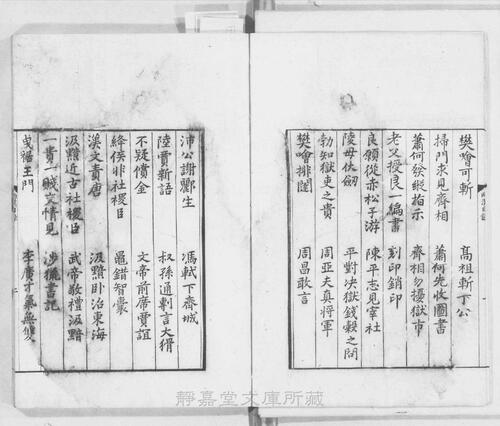 樊噲可斬 高祖斬丁公
掃門求見齊相 蕭何先收圖書
蕭何發縱指示 齊相勿擾獄市
老父授良一編書 刻印銷印
良願從赤松子游 陳平志見宰社
陵母伏劒 平對決獄錢穀之問
勃知獄吏之貴 周亞夫真將軍
樊噲排闥 周昌敢言
沛公謝酈生 馮軾下齊城
陸賈新語 叔孫通剸言大猾
不疑償金 文帝前席賈誼
絳侯非社稷臣 鼂錯智囊
漢文責唐 汲黯卧治東海
汲黯近古社稷臣 武帝敬禮汲黯
一貴一賤交情見 涉獵書記
曳裾王門 李廣才氣無雙
靜嘉堂文庫所藏